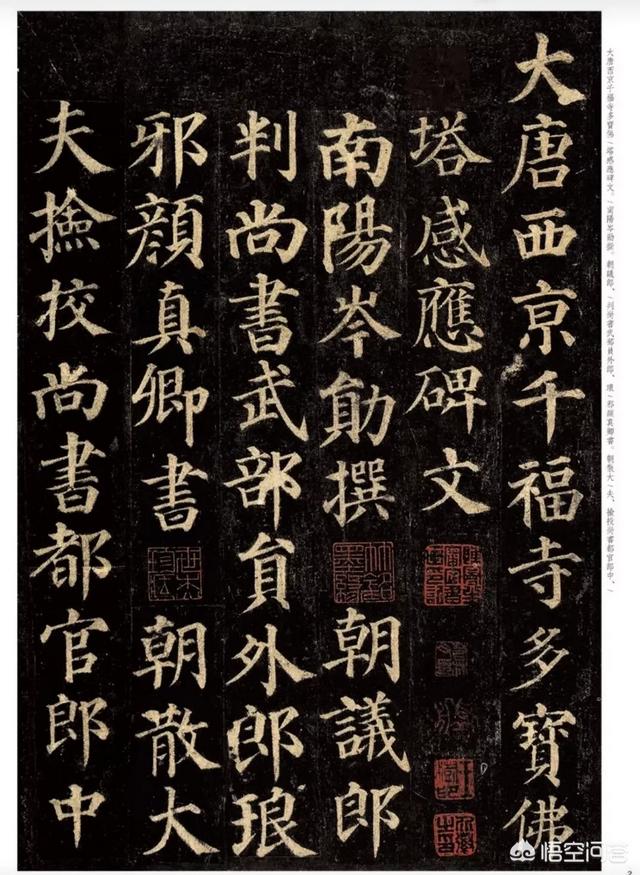 大唐西亰千福寺多寶佛
塔感應碑文
南陽岑勛撰 朝議郎
判尚書武部貟外郎琅
邪顏真卿書 朝散大
夫撿挍尚書都官郎中
大唐西京千福寺多寶佛/塔感應碑文。/南陽岑勛撰。朝議郎、/判尚書武部員外郎、琅/邪顏真卿書。朝散大/夫、撿校尚書都官郎中、/
悟空问答